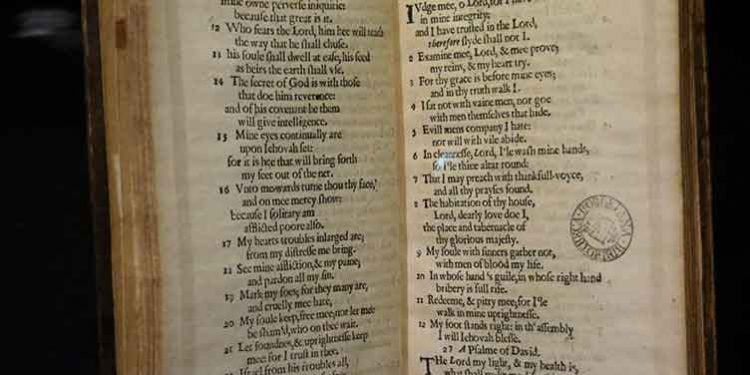 mine owne perverse iniquitie:
because that great is it.
12 Who fears the Lord, him hee will teach
the way that he shall chuse.
13 his soule shall dwell at ease, his seed
as heirs the earth shall vse.
14 The secret of God is with those
that doe him reverence:
and of his covenant he them
will give intelligence.
15 Mine eyes continually are
upon Iehovah set:
for it is hee that will bring forth
my feet out of the net.
16 Vnto mewards turne thou thy face,
and on mee mercy show:
because I solitary am
afflicted poore also.
17 My hearts troubles inlarged are;
from my distresse me bring.
18 See mine affliction, & my paine;
and pardon all my sin.
19 Mark my foes; for they many are,
and cruelly mee hate,
20 My soule keep, free mee; nor let mee
be sham'd, who on thee wait.
21 Let soundnes, & uprightnesse keep
mee: for I trust in thee.
Israel from his troubles all,
IVdge mee, o Lord, for I
in mine integrity:
and I have trusted in the Lord,
therefore slyde shall not I.
2 Examine mee, Lord, & mee prove;
my reins, & my heart try.
3 For thy grace is before mine eyes;
and in thy truth walk I.
4 I sat not with vaine men, nor goe
with men themselves that hide.
5 Evill mens company I hate:
nor will with vile abide.
6 In cleannesse, Lord, I'le wash mine hands,
so I'le thine altar round:
7 That I may preach with thankfull voyce,
and all thy prayses found.
8 The habitation of thy house,
Lord, dearly love doe I,
the place and tabernacle of
thy glorious majesty.
9 My soule with sinners gather not,
with men of blood my life.
10 In whose hand's guile, in whose right hand
bribery is full rife.
11 Redeeme, & pitty mee; for I'le
walk in mine uprightnesse.
12 My foot stands right: in th' assembly
I will Iehovah blesse.
27 A Psalme of David.
THe Lord my light, & my health is,
what shall